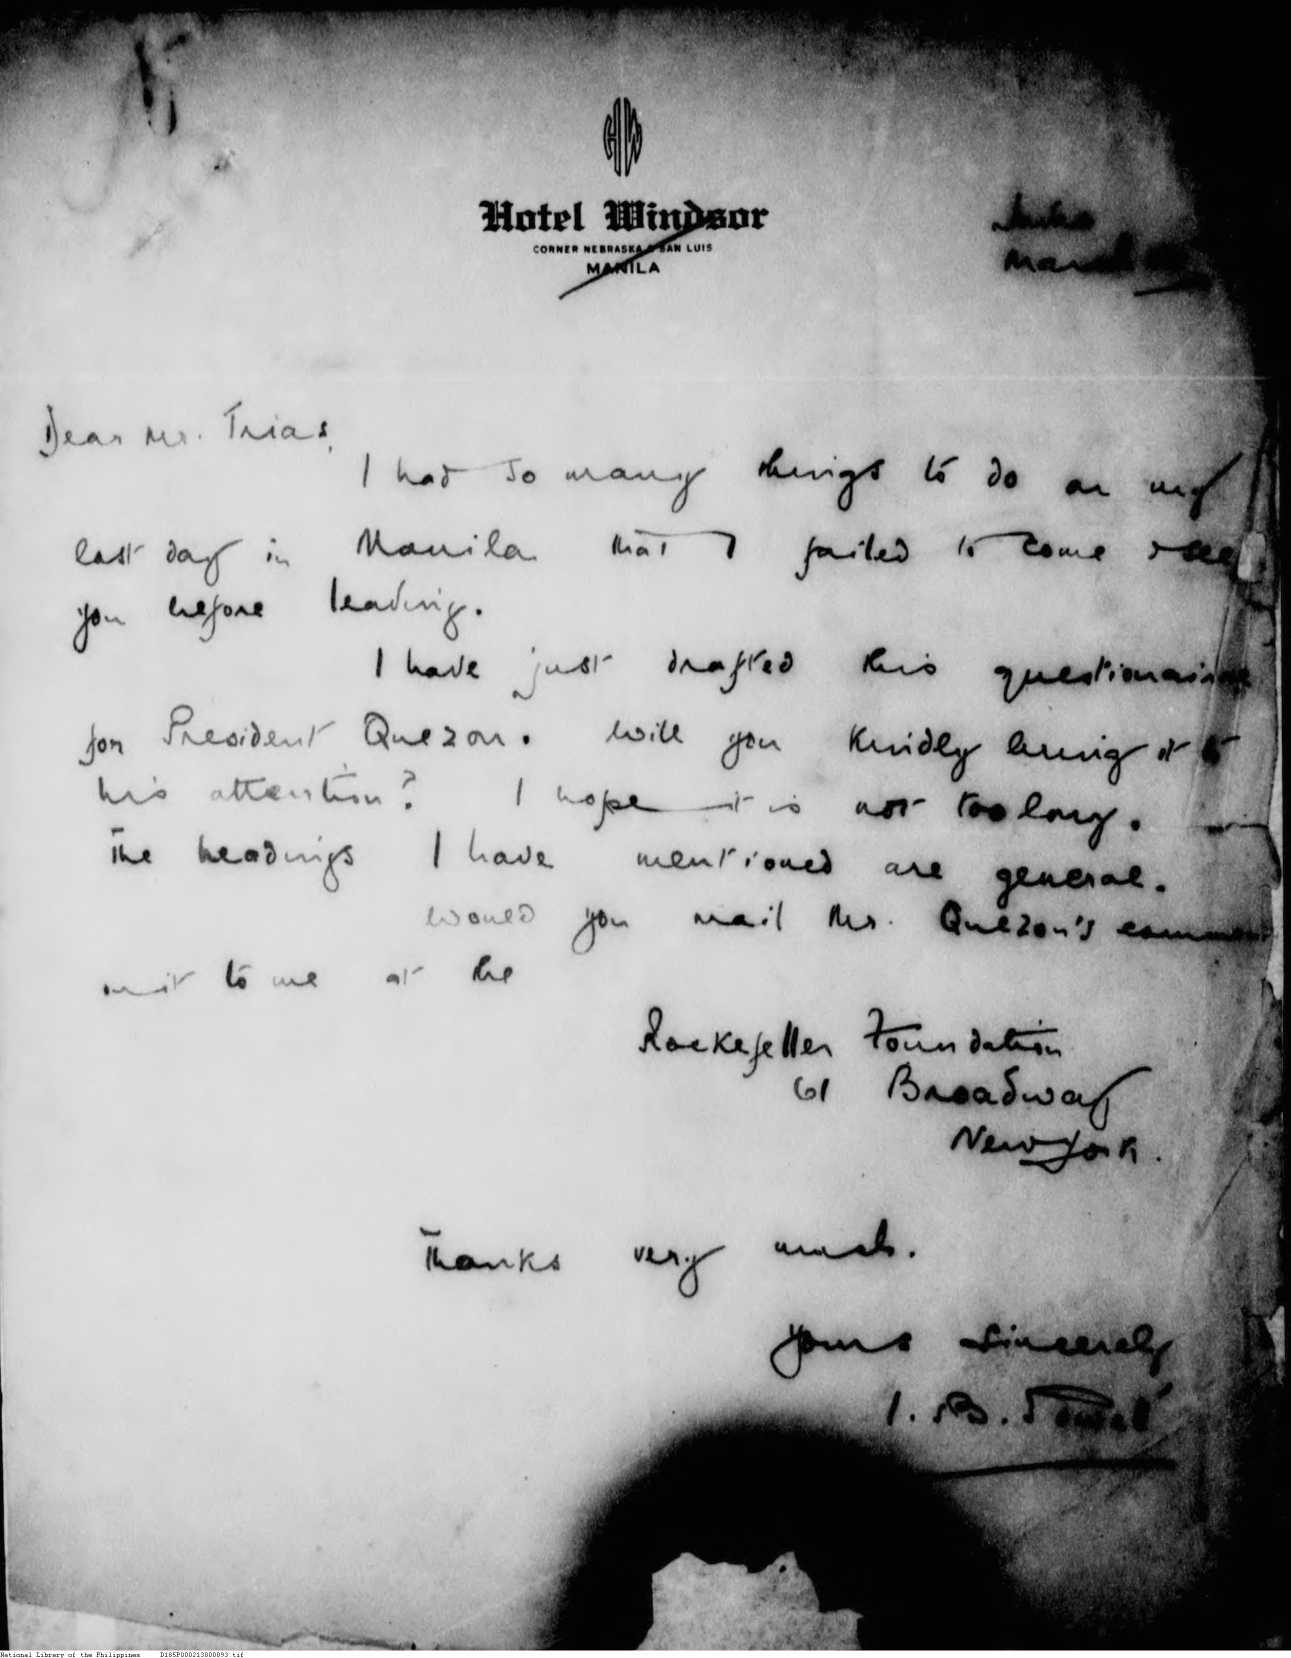 HW
Hotel Windsor
CORNER NEBRASKA & SAN LUIS
MANILA
Dear Mr. Trias,
I had so many things to do on my
last day in Manila that I failed to come & see
you before leaving.
I have just drafted this questionaire
for President Quezon. Will you kindly bring it to
his attention? I hope it is not too long.
The headings I have mentioned are general.
Would you mail Mr. Quezon's comment
on it to me at the
Rockefeller Foundation
61 Broadway
New York.
Thanks very much.
Yours sincerely
I. B.
National Library of the Philippines D185P000213000093.tif